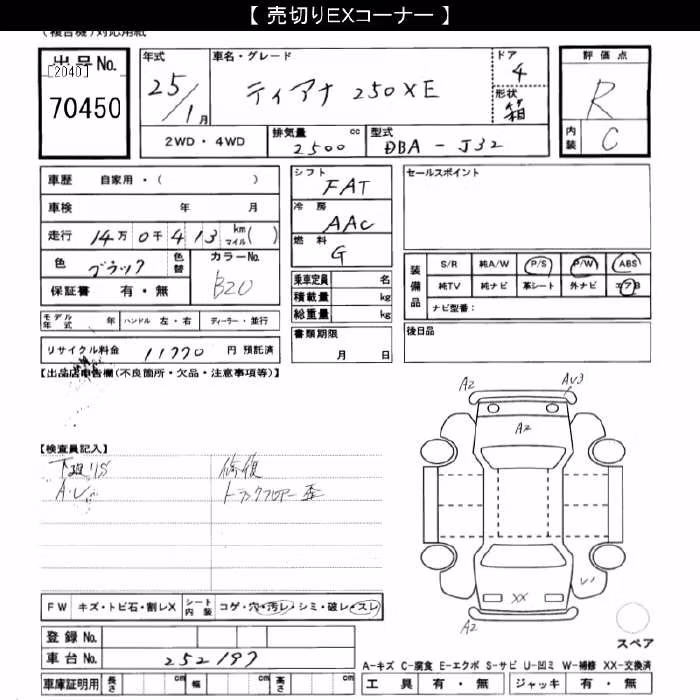 【 売切りEXコーナー 】
(複合機)対応用紙
出品No.
[2040]
70450
年式
25/1月
車名・グレード
ティアナ 250XE
ドア
4
形状
箱
評価点
R
内装
C
2WD・4WD
排気量 cc
2500
型式
DBA - J32
車歴 自家用・( )
車検 年 月
走行 14万 0千 413 km マイル( )
色 ブラック 色替 カラーNo. B20
保証書 有・無
シフト
FAT
冷房
AAC
燃料
G
乗車定員 名
積載量 kg
総重量 kg
書類期限
月 日
セールスポイント
装備品
S/R 純A/W P/S P/W ABS
純TV 純ナビ 革シート 外ナビ エアB
ナビ型番:
後日品
モデル年式 年 ハンドル 左・右 ディーラー・並行
リサイクル料金 11770 円 預託済
【出品店申告欄(不良箇所・欠品・注意事項等)】
【検査員記入】
下廻りS 修復
A・U トランクフロアー 歪
A2 AU3
A2
U1
XX
A2
FW キズ・トビ石・割レX シート内装 コゲ・穴・汚レ・シミ・破レ・スレ
登録No.
車台No. 252197
車庫証明用 長さ cm 幅 cm 高さ cm
スペア
A-キズ C-腐食 E-エクボ S-サビ U-凹ミ W-補修 XX-交換済
工具 有・無 ジャッキ 有・無